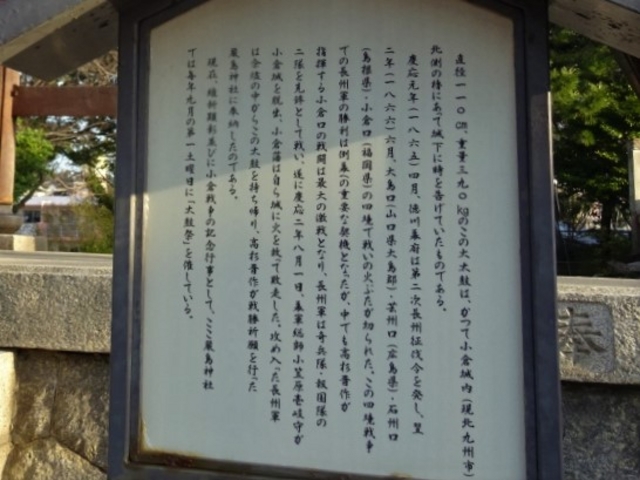 直径一一〇cm、重量三九〇kgのこの大太鼓は、かつて小倉城内(現北九州市)
北側の櫓にあて城下に時を告げていたものである。
慶応元年(一八六五)四月、徳川幕府は第二次長州征伐令を発し、翌
二年(一八六六)六月、大島口(山口県大島郡)・芸州口(広島県)・石州口
(島根県)・小倉口(福岡県)の四境で戦いの火ぶたが切られた。この四境戦争
での長州軍の勝利は倒幕への重要な契機となったが、中でも高杉晋作が
指揮する小倉口の戦闘は最大の激戦となり、長州軍は奇兵隊・報国隊の
二隊を先鋒として戦い、遂に慶応二年八月一日、幕軍総師小笠原壱岐守が
小倉城を脱出、小倉藩は自ら城に火を放って敗走した。攻め入った長州軍
は余燼の中からこの太鼓を持ち帰り、高杉晋作が戦勝祈願を行った
厳島神社に奉納したのである。
現在、維新顕彰並びに小倉戦争の記念行事として、ここ厳島神社
では毎年九月の第一土曜日に「太鼓祭」を催している。
奉